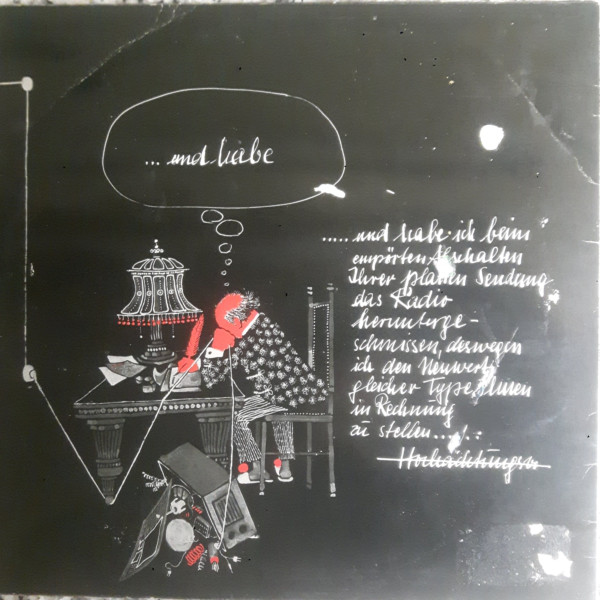 ... und habe
..... und habe ich beim
empörten Abschalten
Ihrer Sendung
das Radio
herunterge-
schmissen, deswegen
ich den Neuwert
gleicher Type Ihnen
in Rechnung
zu stellen.....